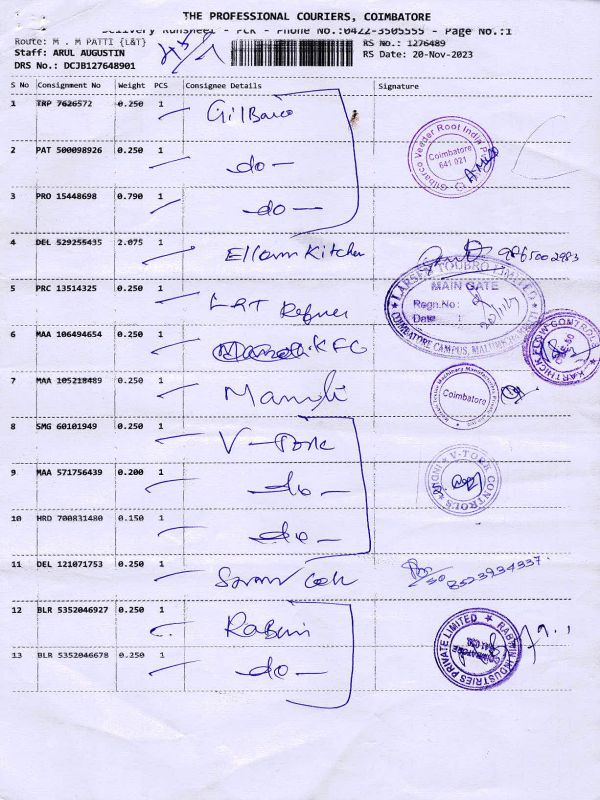 THE PROFESSIONAL COURIERS, COIMBATORE
Delivery Runsheet - PCR - Phone No.:0422-3505555 - Page No.:1
Route: M . M PATTI {L&T}
RS No.: 1276489
Staff: ARUL AUGUSTIN
RS Date: 20-Nov-2023
DRS No.: DCJB127648901
S No Consignment No Weight PCS Consignee Details Signature
1 TRP 7626572 0.250 1 Gilbarco
Gilbarco Veeder Root India P
Coimbatore
641 021
2 PAT 500098926 0.250 1 -do-
3 PRO 15448698 0.790 1 -do-
4 DEL 529255435 2.075 1 Kitchen
LARSEN & TOUBRO LIMITED
MAIN GATE
Regn.No:
Date :
COIMBATORE CAMPUS,
5 PRC 13514325 0.250 1 L&T
6 MAA 106494654 0.250 1 KFC
KARTHICK FLOW CONTROLS
7 MAA 105218489 0.250 1
Coimbatore
8 SMG 60101949 0.250 1 V-Tork
V-TORK CONTROLS
9 MAA 571756439 0.200 1 -do-
10 HRD 700831480 0.150 1 -do-
11 DEL 121071753 0.250 1
8523934337
12 BLR 5352046927 0.250 1 Rabwin
RABWIN INDUSTRIES PRIVATE LIMITED
13 BLR 5352046678 0.250 1 -do-